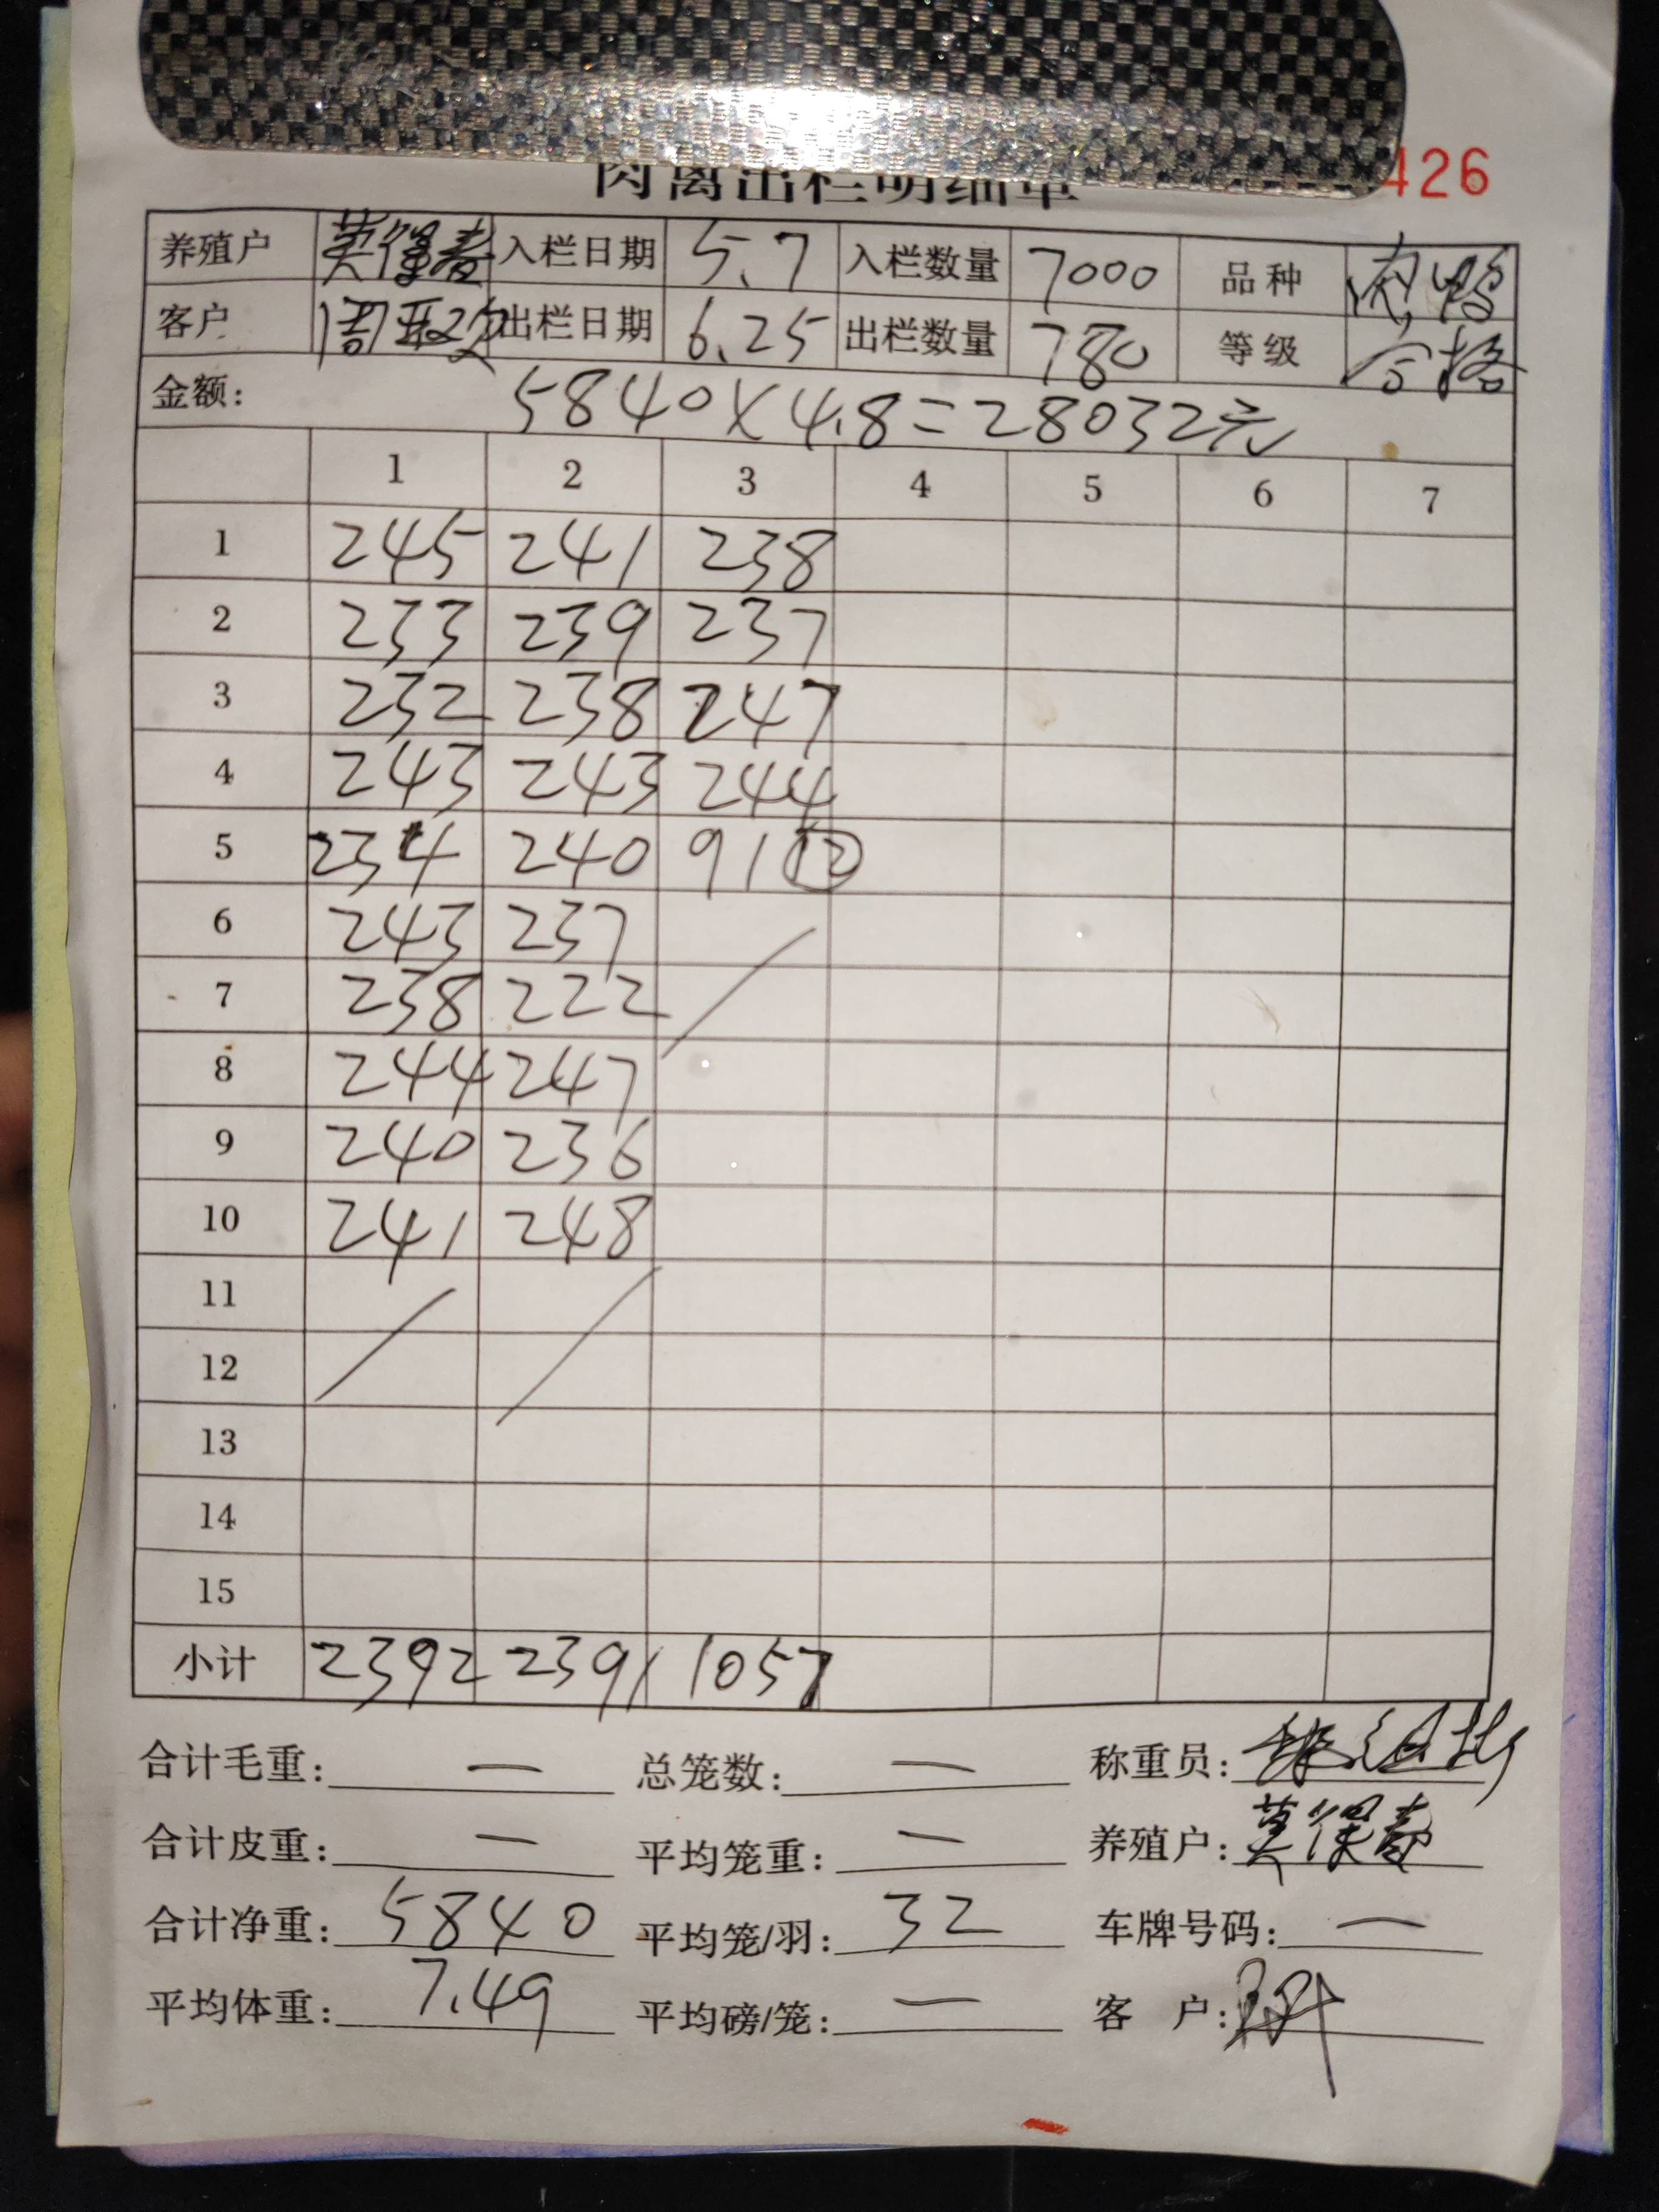 肉禽出栏明细单 426
养殖户 莫保春 入栏日期 5.7 入栏数量 7000 品种 肉鸭
客户 出栏日期 6.25 出栏数量 780 等级 合格
金额: 5840×4.8=28032元
1 2 3 4 5 6 7
1 245 241 238
2 233 239 237
3 232 238 247
4 243 243 244
5 234 240 91 ⑫
6 243 237
7 238 222
8 244 247
9 240 236
10 241 248
11
12
13
14
15
小计 2392 2391 1057
合计毛重: — 总笼数: — 称重员:
合计皮重: — 平均笼重: — 养殖户: 莫保春
合计净重: 5840 平均笼/羽: 32 车牌号码: —
平均体重: 7.49 平均磅/笼: — 客 户: